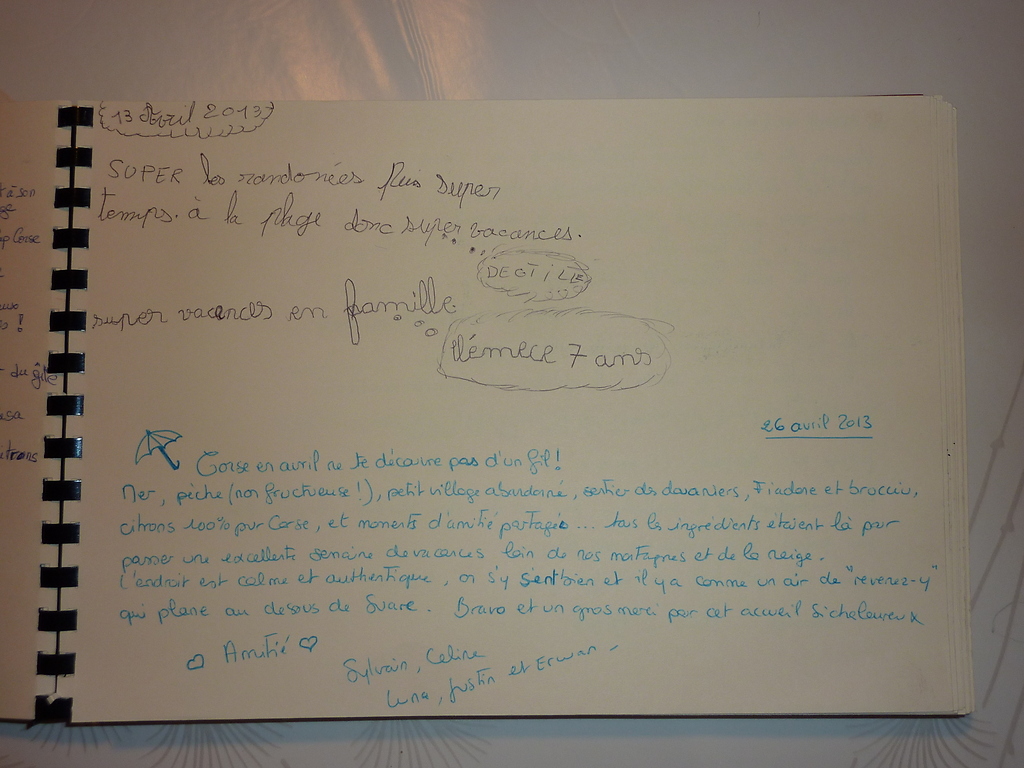 13 Avril 2013
SUPER les randonées Puis super
temps. à la plage donc super vacances.
super vacances en famille.
7 ans
26 avril 2013
Corse en avril ne te découvre pas d'un fil!
Mer, pêche (non fructueuse!), petit village abandonné, sentier des douaniers, Fiadone et brocciu,
citrons 100% pur Corse, et moments d'amitié partagés... tous les ingrédients étaient là pour
passer une excellente semaine de vacances loin de nos montagnes et de la neige.
L'endroit est calme et authentique, on s'y sent bien et il y a comme un air de "revenez-y"
qui plane au dessus de Suare. Bravo et un gros merci pour cet accueil si chaleureux
Amitié
Sylvain, Celine
Luna, Justin et Erwan
à son
Corse
!
du gîte